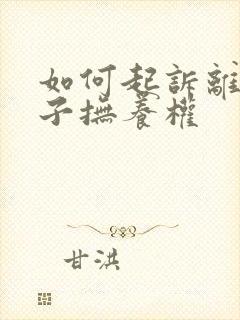 如何起訴離
子撫養權
甘洪